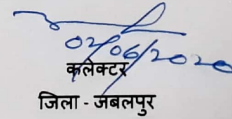 02/06/2020
कलेक्टर
जिला - जबलपुर